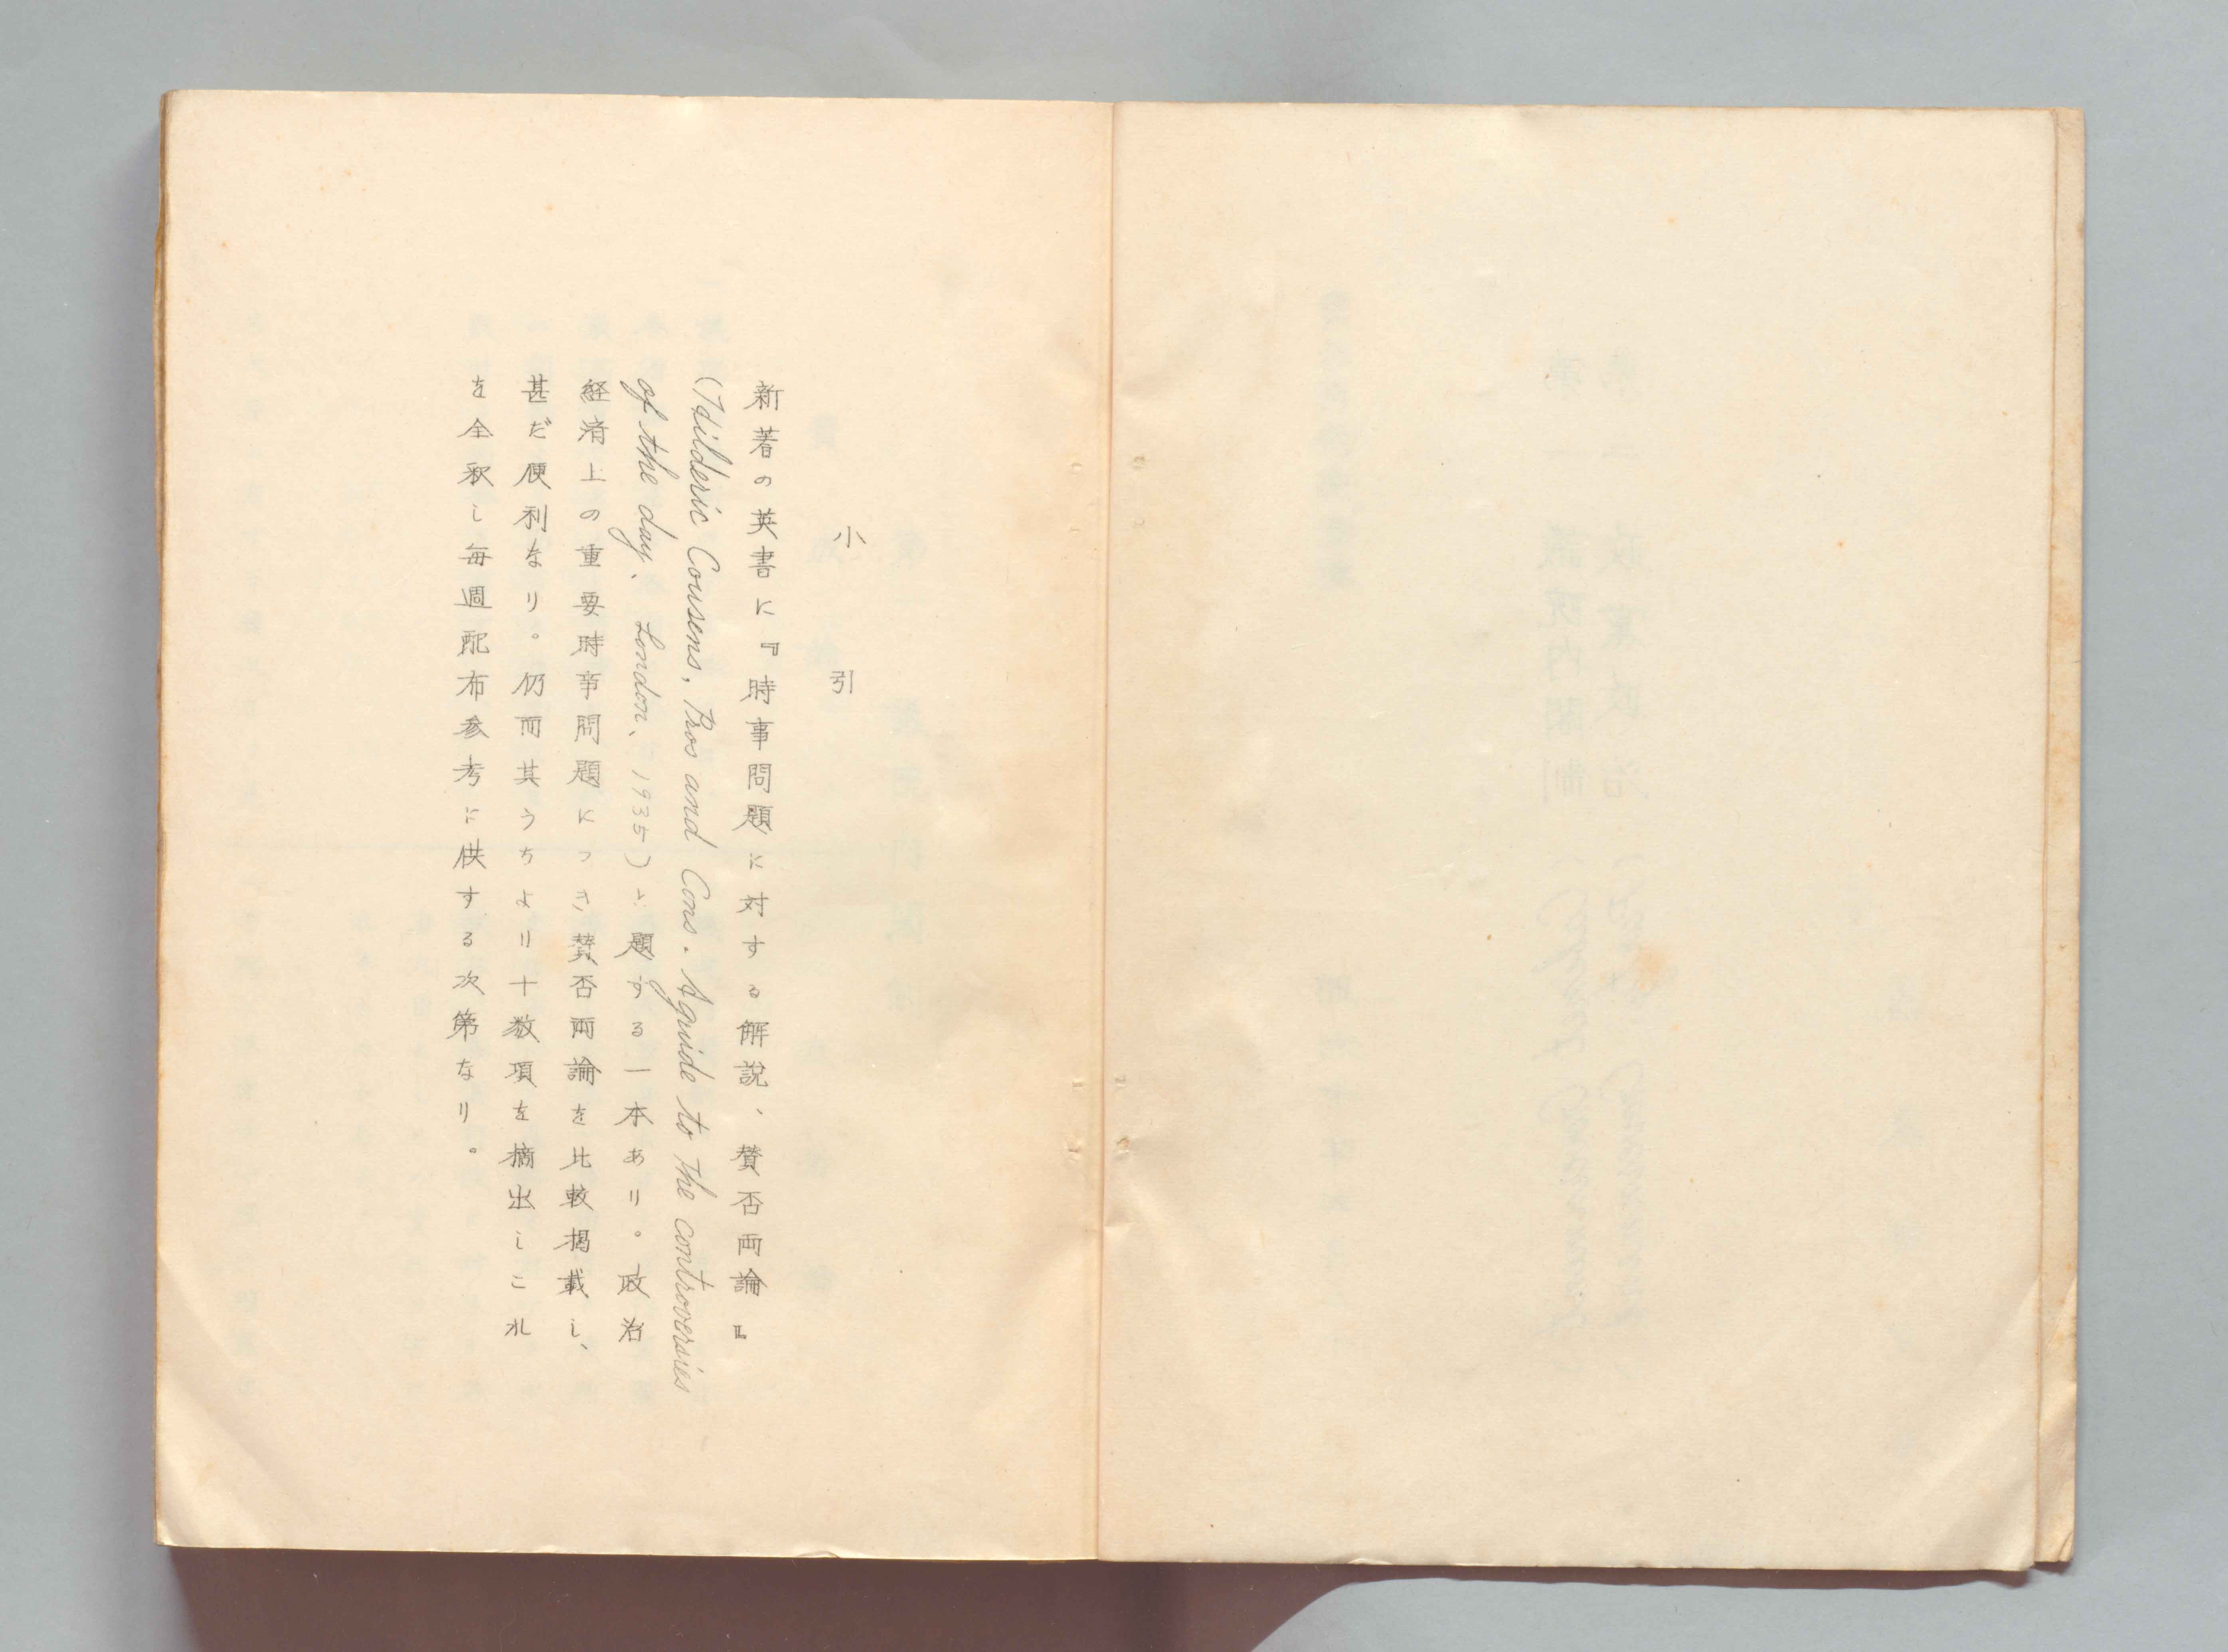 小引
新著の英書に『時事問題に対する解説、賛否両論』
(Hilderic Cousens, Pros and Cons. A guide to the controversies
of the day, London, 1935)と題する一本あり。政治
経済上の重要時事問題につき賛否両論を比較掲載し、
甚だ便利なり。仍而其うちより十数項を摘出しこれ
を全釈し毎週配布参考に供する次第なり。